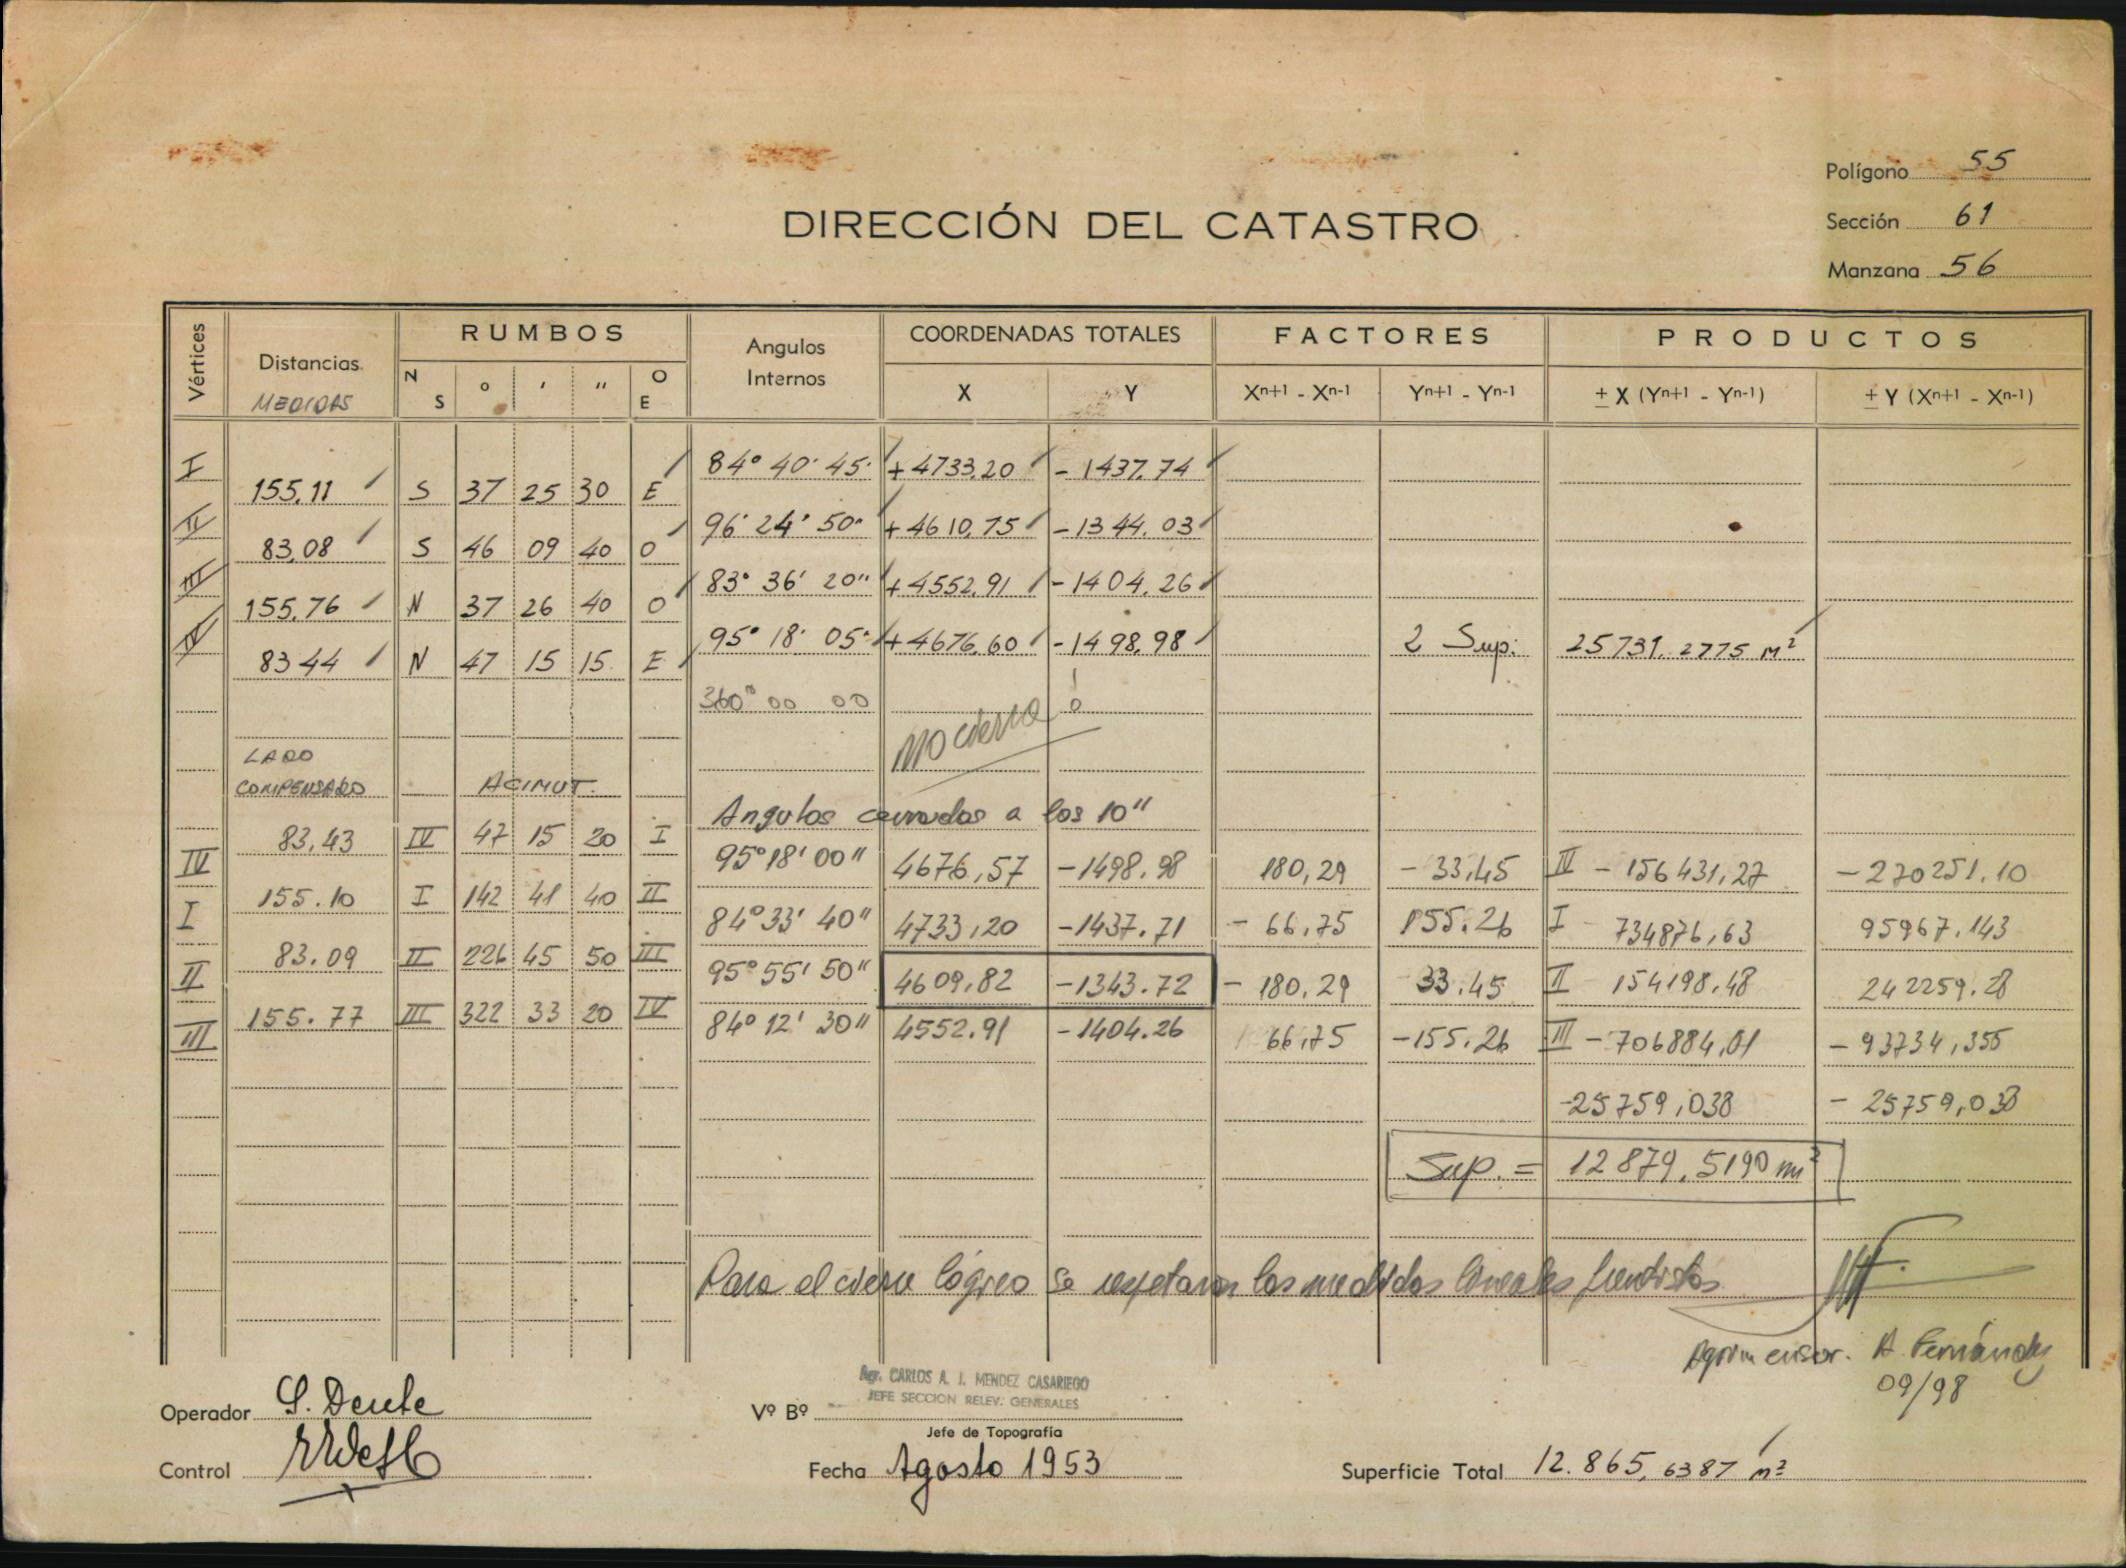 Polígono 55
DIRECCIÓN DEL CATASTRO
Sección 61
Manzana 56
Vértices Distancias MEDIDAS RUMBOS N S ° ' " O E Angulos Internos COORDENADAS TOTALES X Y FACTORES Xn+1 - Xn-1 Yn+1 - Yn-1 PRODUCTOS ± X (Yn+1 - Yn-1) ± Y (Xn+1 - Xn-1)
I 84° 40' 45" +4733.20 -1437.74
155.11 S 37 25 30 E
II 96° 24' 50" +4610.75 -1344.03
83,08 S 46 09 40 O
III 83° 36' 20" +4552.91 -1404.26
155.76 N 37 26 40 O
IV 95° 18' 05" +4676.60 -1498.98 2 Sup: 25731.2775 m²
83 44 N 47 15 15 E
360° 00 00 0
No cierra
LADO
COMPENSADO ACIMUT.
Angulos cerrados a los 10"
83,43 IV 47 15 20 I
IV 95°18'00" 4676,57 -1498.98 180,29 -33,45 IV -156431,27 -270251.10
155.10 I 142 41 40 II
I 84°33'40" 4733,20 -1437.71 -66,75 155.26 I 734876,63 95967.143
83.09 II 226 45 50 III
II 95°55'50" 4609,82 -1343.72 -180.29 33.45 II 154198.48 242259.28
155.77 III 322 33 20 IV
III 84° 12' 30" 4552.91 -1404.26 66,75 -155.26 III -706884,01 -93734,355
-25759,038 -25759,038
Sup. = 12879.5190 m²
Para el cierre lógico se respetaron las medidas lineales frentistas
Agrimensor. A. Fernández
09/98
Operador S. Dente
Vº Bº
Agr. CARLOS A. J. MENDEZ CASARIEGO
JEFE SECCION RELEV. GENERALES
Jefe de Topografía
Control
Fecha Agosto 1953
Superficie Total 12.865,6387 m²